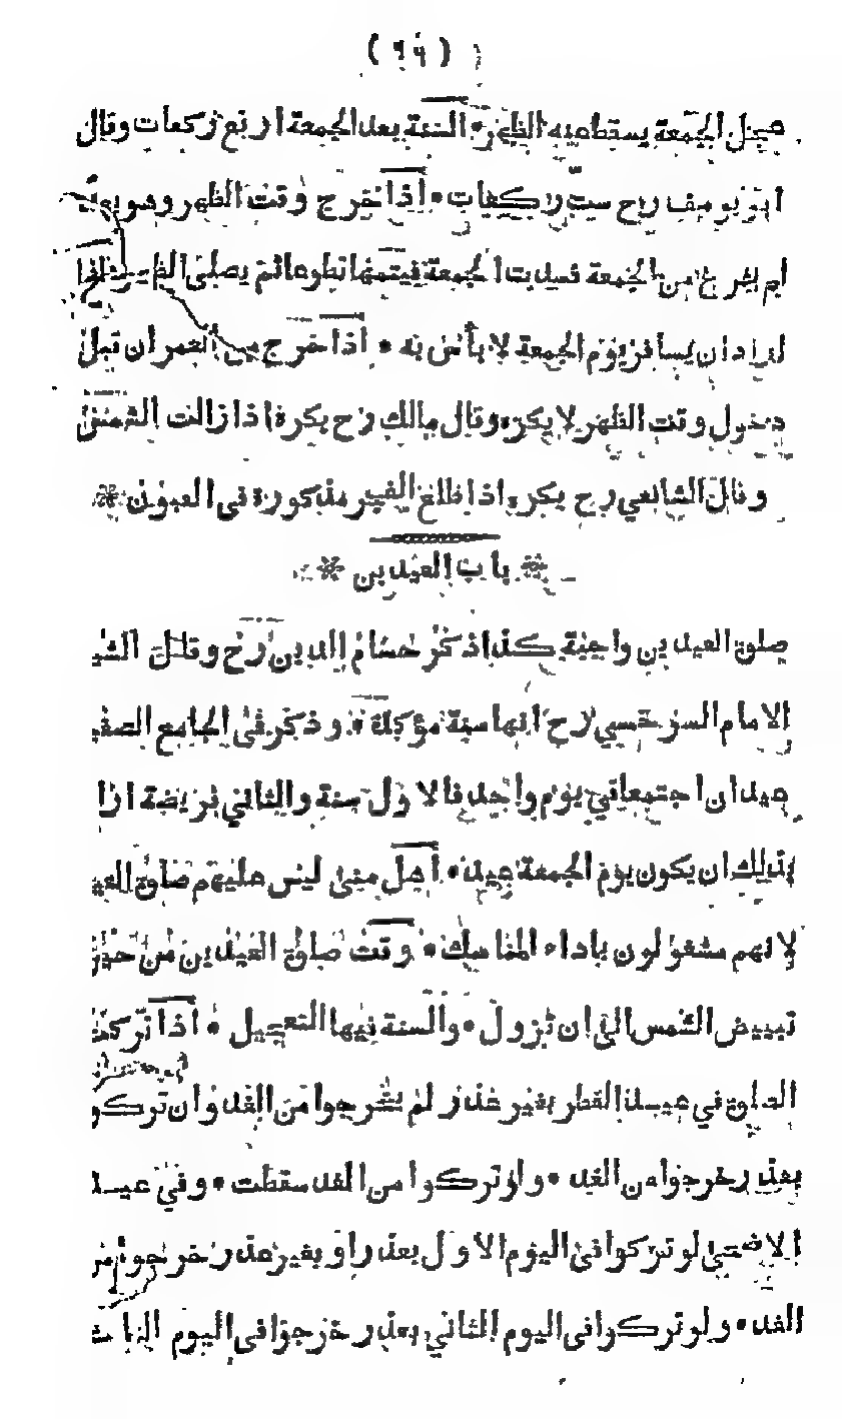 ( ٩٩ )
الجمعة يسقط عنه الظهر • السنة بعد الجمعة اربع ركعات وقال
ابو يوسف رح ست ركعات • اذا خرج وقت الظهر وهو بعد
لم يفرغ من الجمعة فسدت الجمعة فيتمها تطوعا ثم يصلى الظهر
اراد ان يسافر يوم الجمعة لا بأس به • اذا خرج من العمران قبل
دخول وقت الظهر لا يكره وقال مالك رح يكره اذا زالت الشمس
وقال الشافعي رح يكره اذا طلع الفجر مذكورة فى العيون *
* باب العيدين *
صلوة العيدين واجبة كذا ذكر حسام الدين رح وقال الشيـ
الامام السرخسي رح انها سنة مؤكدة • وذكر فى الجامع الصغير
عيدان اجتمعا في يوم واحد فالاول سنة والثاني فريضة اراد
بذلك ان يكون يوم الجمعة عيد • اهل منى ليس عليهم صلوة العيـ
لانهم مشغولون باداء المناسك • وقت صلوة العيدين من حين
تبييض الشمس الى ان تزول • والسنة فيها التعجيل • اذا تركت
الصلوة في عيد الفطر بغير عذر لم يخرجوا من الغد وان تركو
بعذر خرجوا من الغد • ولو تركوا من الغد سقطت • وفي عيد
الاضحى لو تركوا فى اليوم الاول بعذر او بغير عذر خرجوا من
الغد • ولو تركوا فى اليوم الثاني بعذر خرجوا فى اليوم الثالث